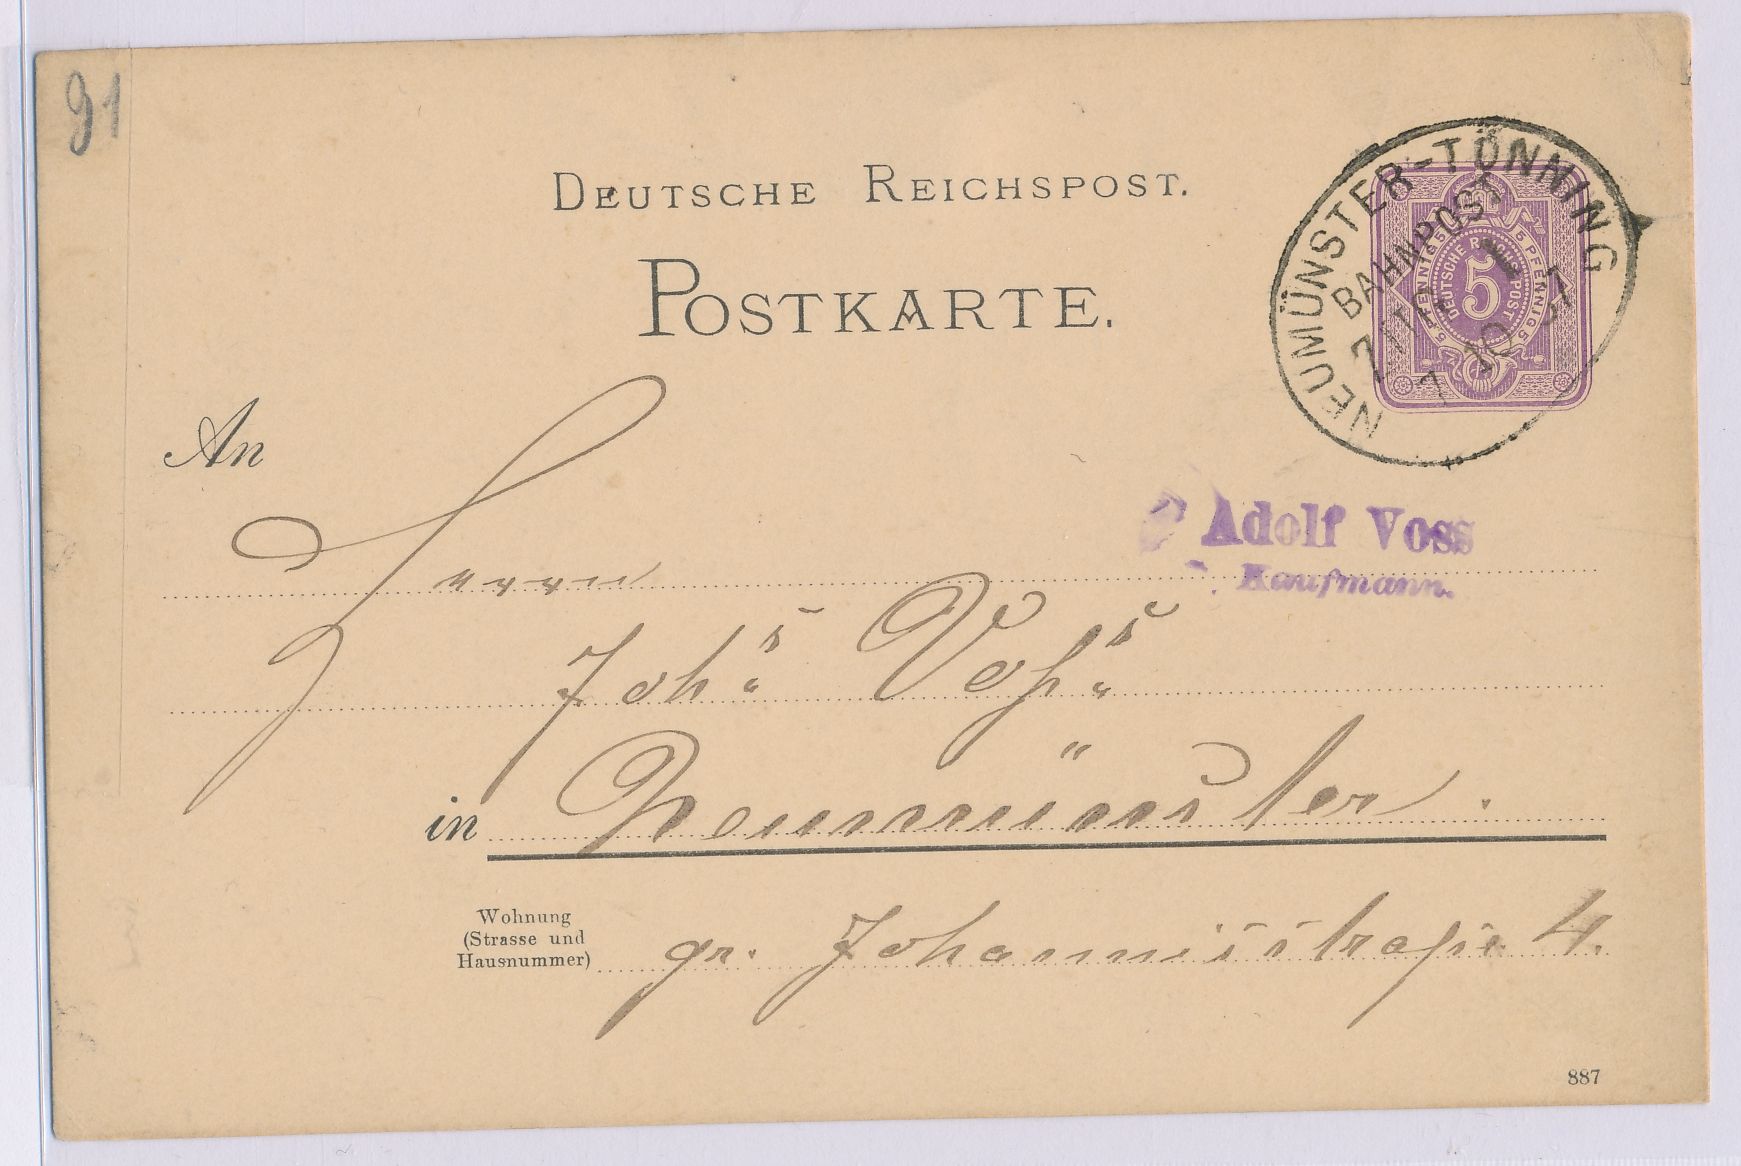 91
DEUTSCHE REICHSPOST.
POSTKARTE.
NEUMÜNSTER-TÖNNING
BAHNPOST
ZUG
7 10 87
5 PFENNIG 5
5 PFENNIG 5
DEUTSCHE REICHSPOST
5
An
Adolf Voss
Kaufmann.
Herrn
Johs Voß
in Neumünster.
Wohnung
(Strasse und
Hausnummer)
gr. Johannisstraße 4.
887